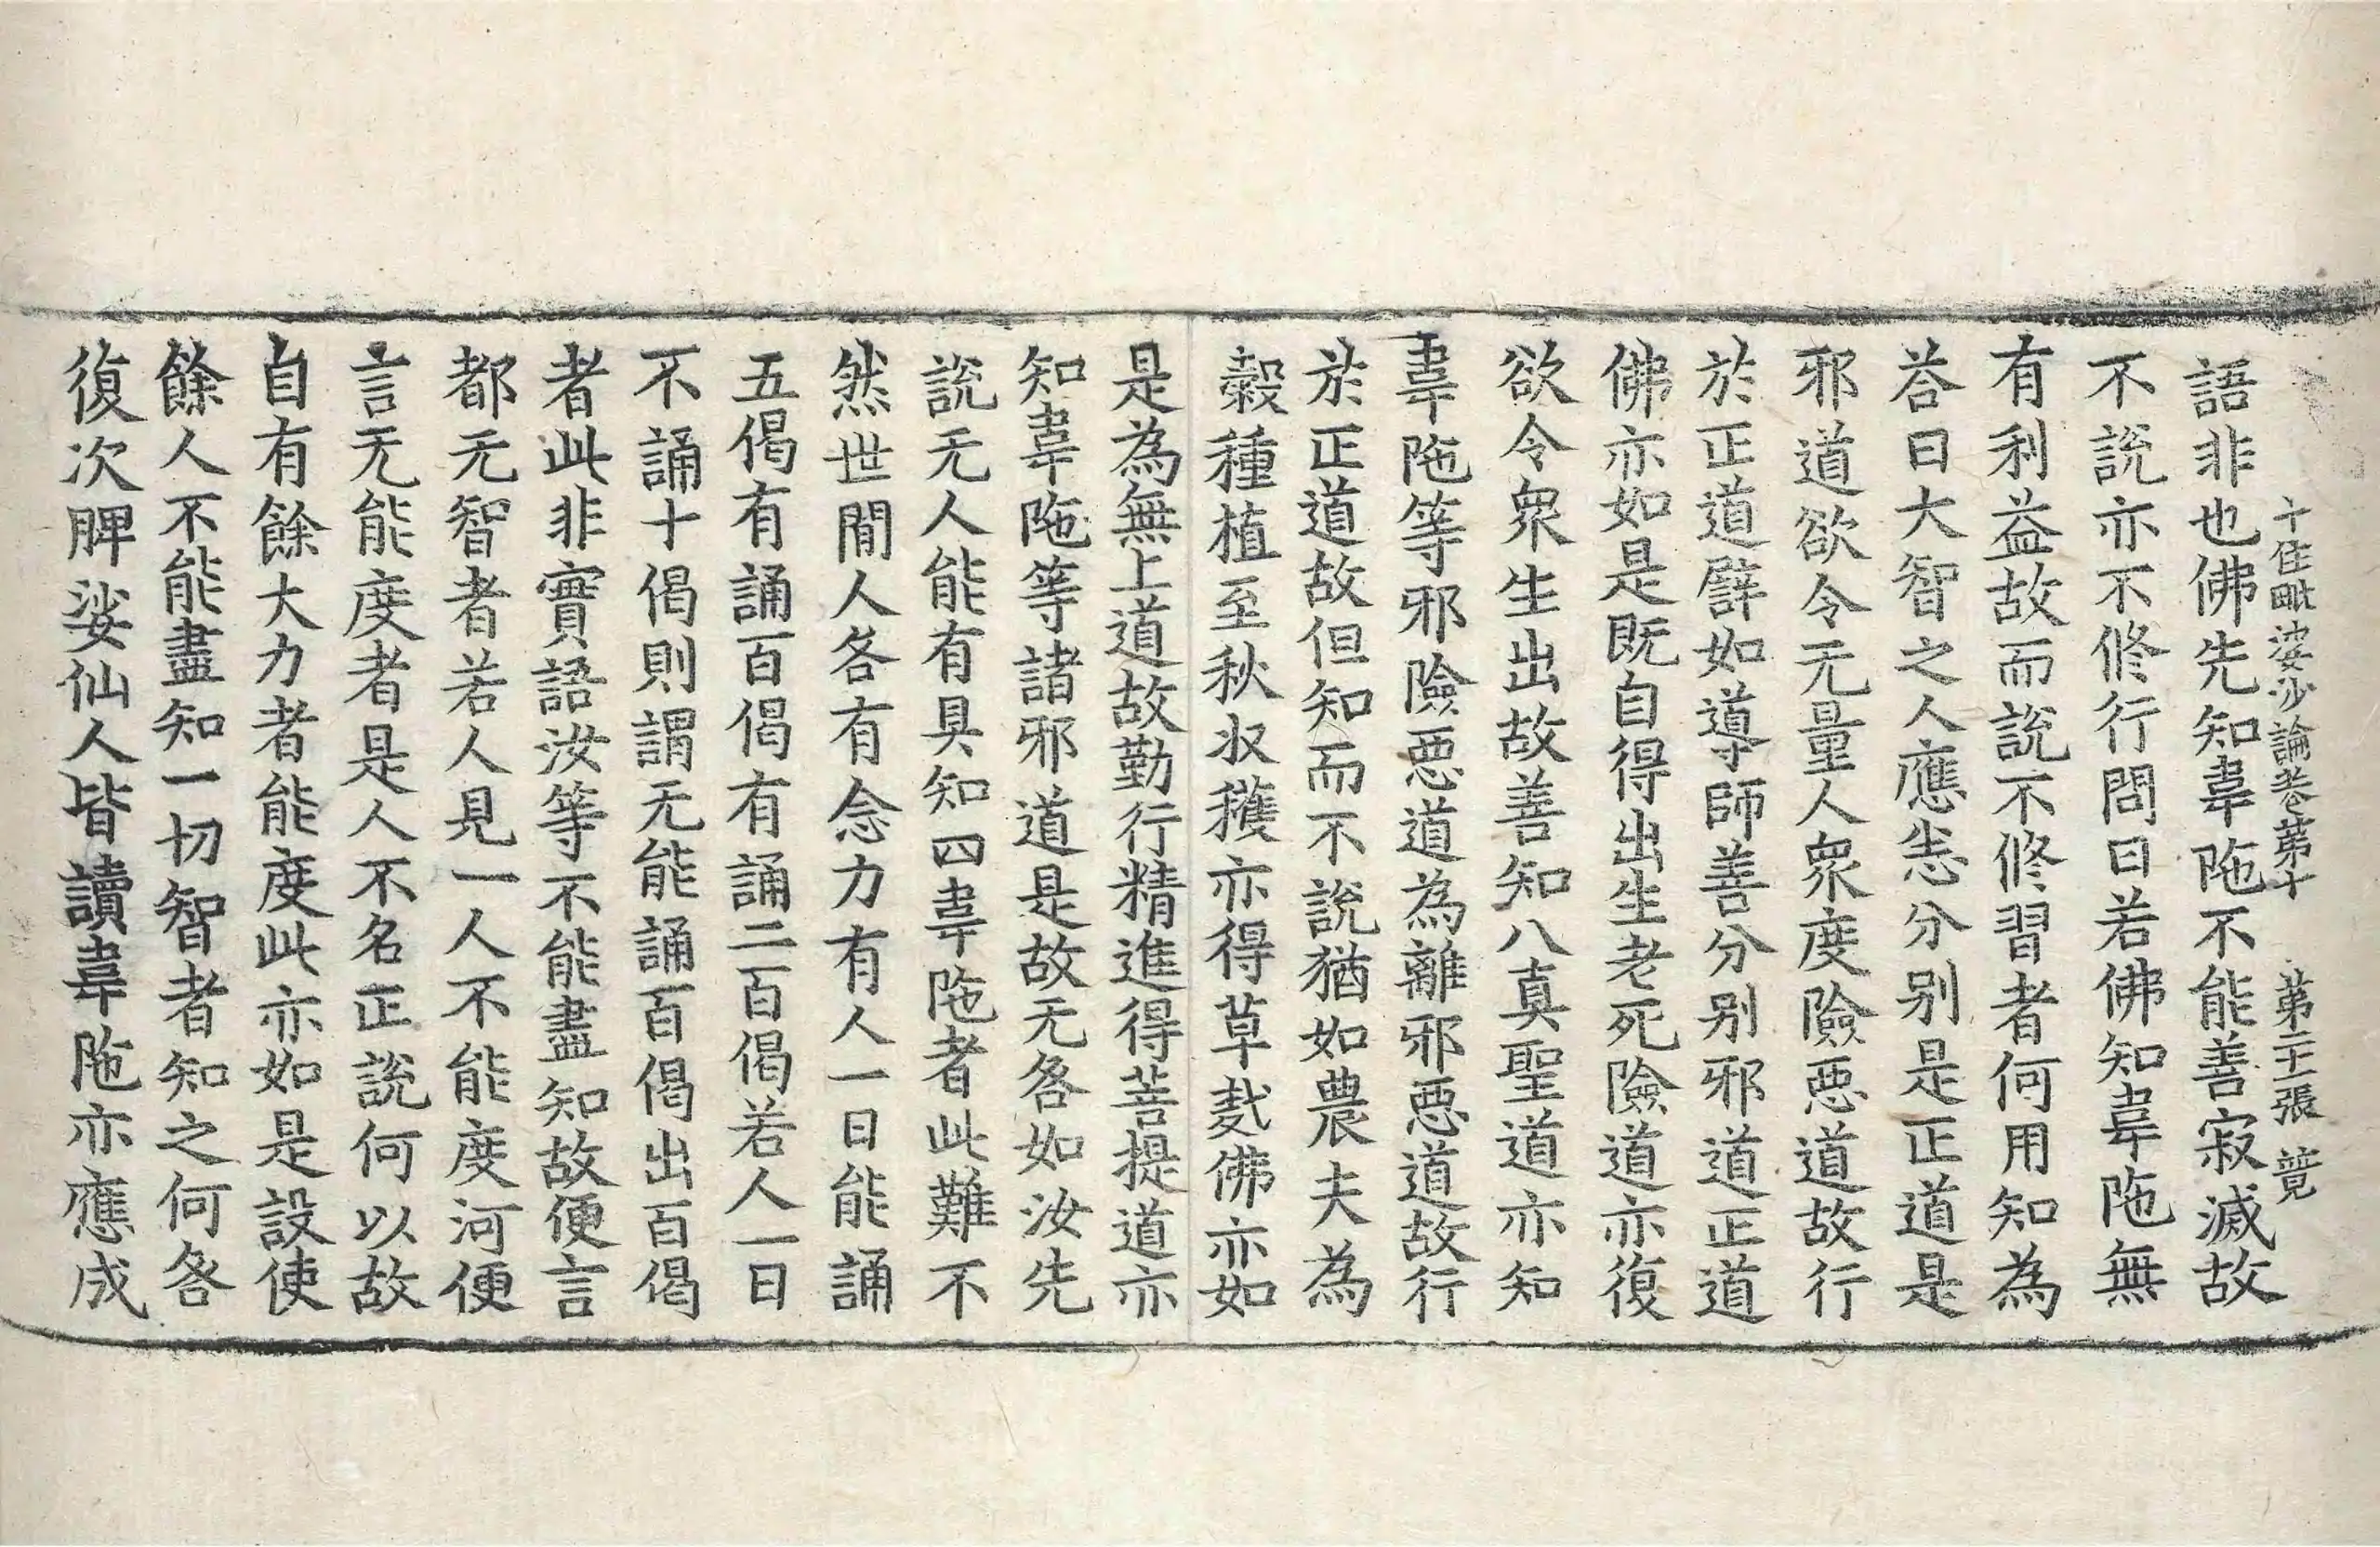 十住毗婆沙論卷第十 第二十二張 競
語非也佛先知韋陁不能善寂滅故
不說亦不修行問曰若佛知韋陁無
有利益故而說不修習者何用知為
荅曰大智之人應悉分別是正道是
邪道欲令无量人衆度險惡道故行
於正道譬如導師善分別邪道正道
佛亦如是既自得出生老死險道亦復
欲令衆生出故善知八真聖道亦知
韋陁等邪險惡道為離邪惡道故行
於正道故但知而不說猶如農夫為
穀種植至秋収穫亦得草𥝖佛亦如
是為無上道故勤行精進得菩提道亦
知韋陁等諸邪道是故无咎如汝先
說无人能有具知四韋陁者此難不
然世間人各有念力有人一日能誦
五偈有誦百偈有誦二百偈若人一日
不誦十偈則謂无能誦百偈出百偈
者此非實語汝等不能盡知故便言
都无智者若人見一人不能度河便
言无能度者是人不名正說何以故
自有餘大力者能度此亦如是設使
餘人不能盡知一切智者知之何咎
復次脾娑仙人皆讀韋陁亦應成